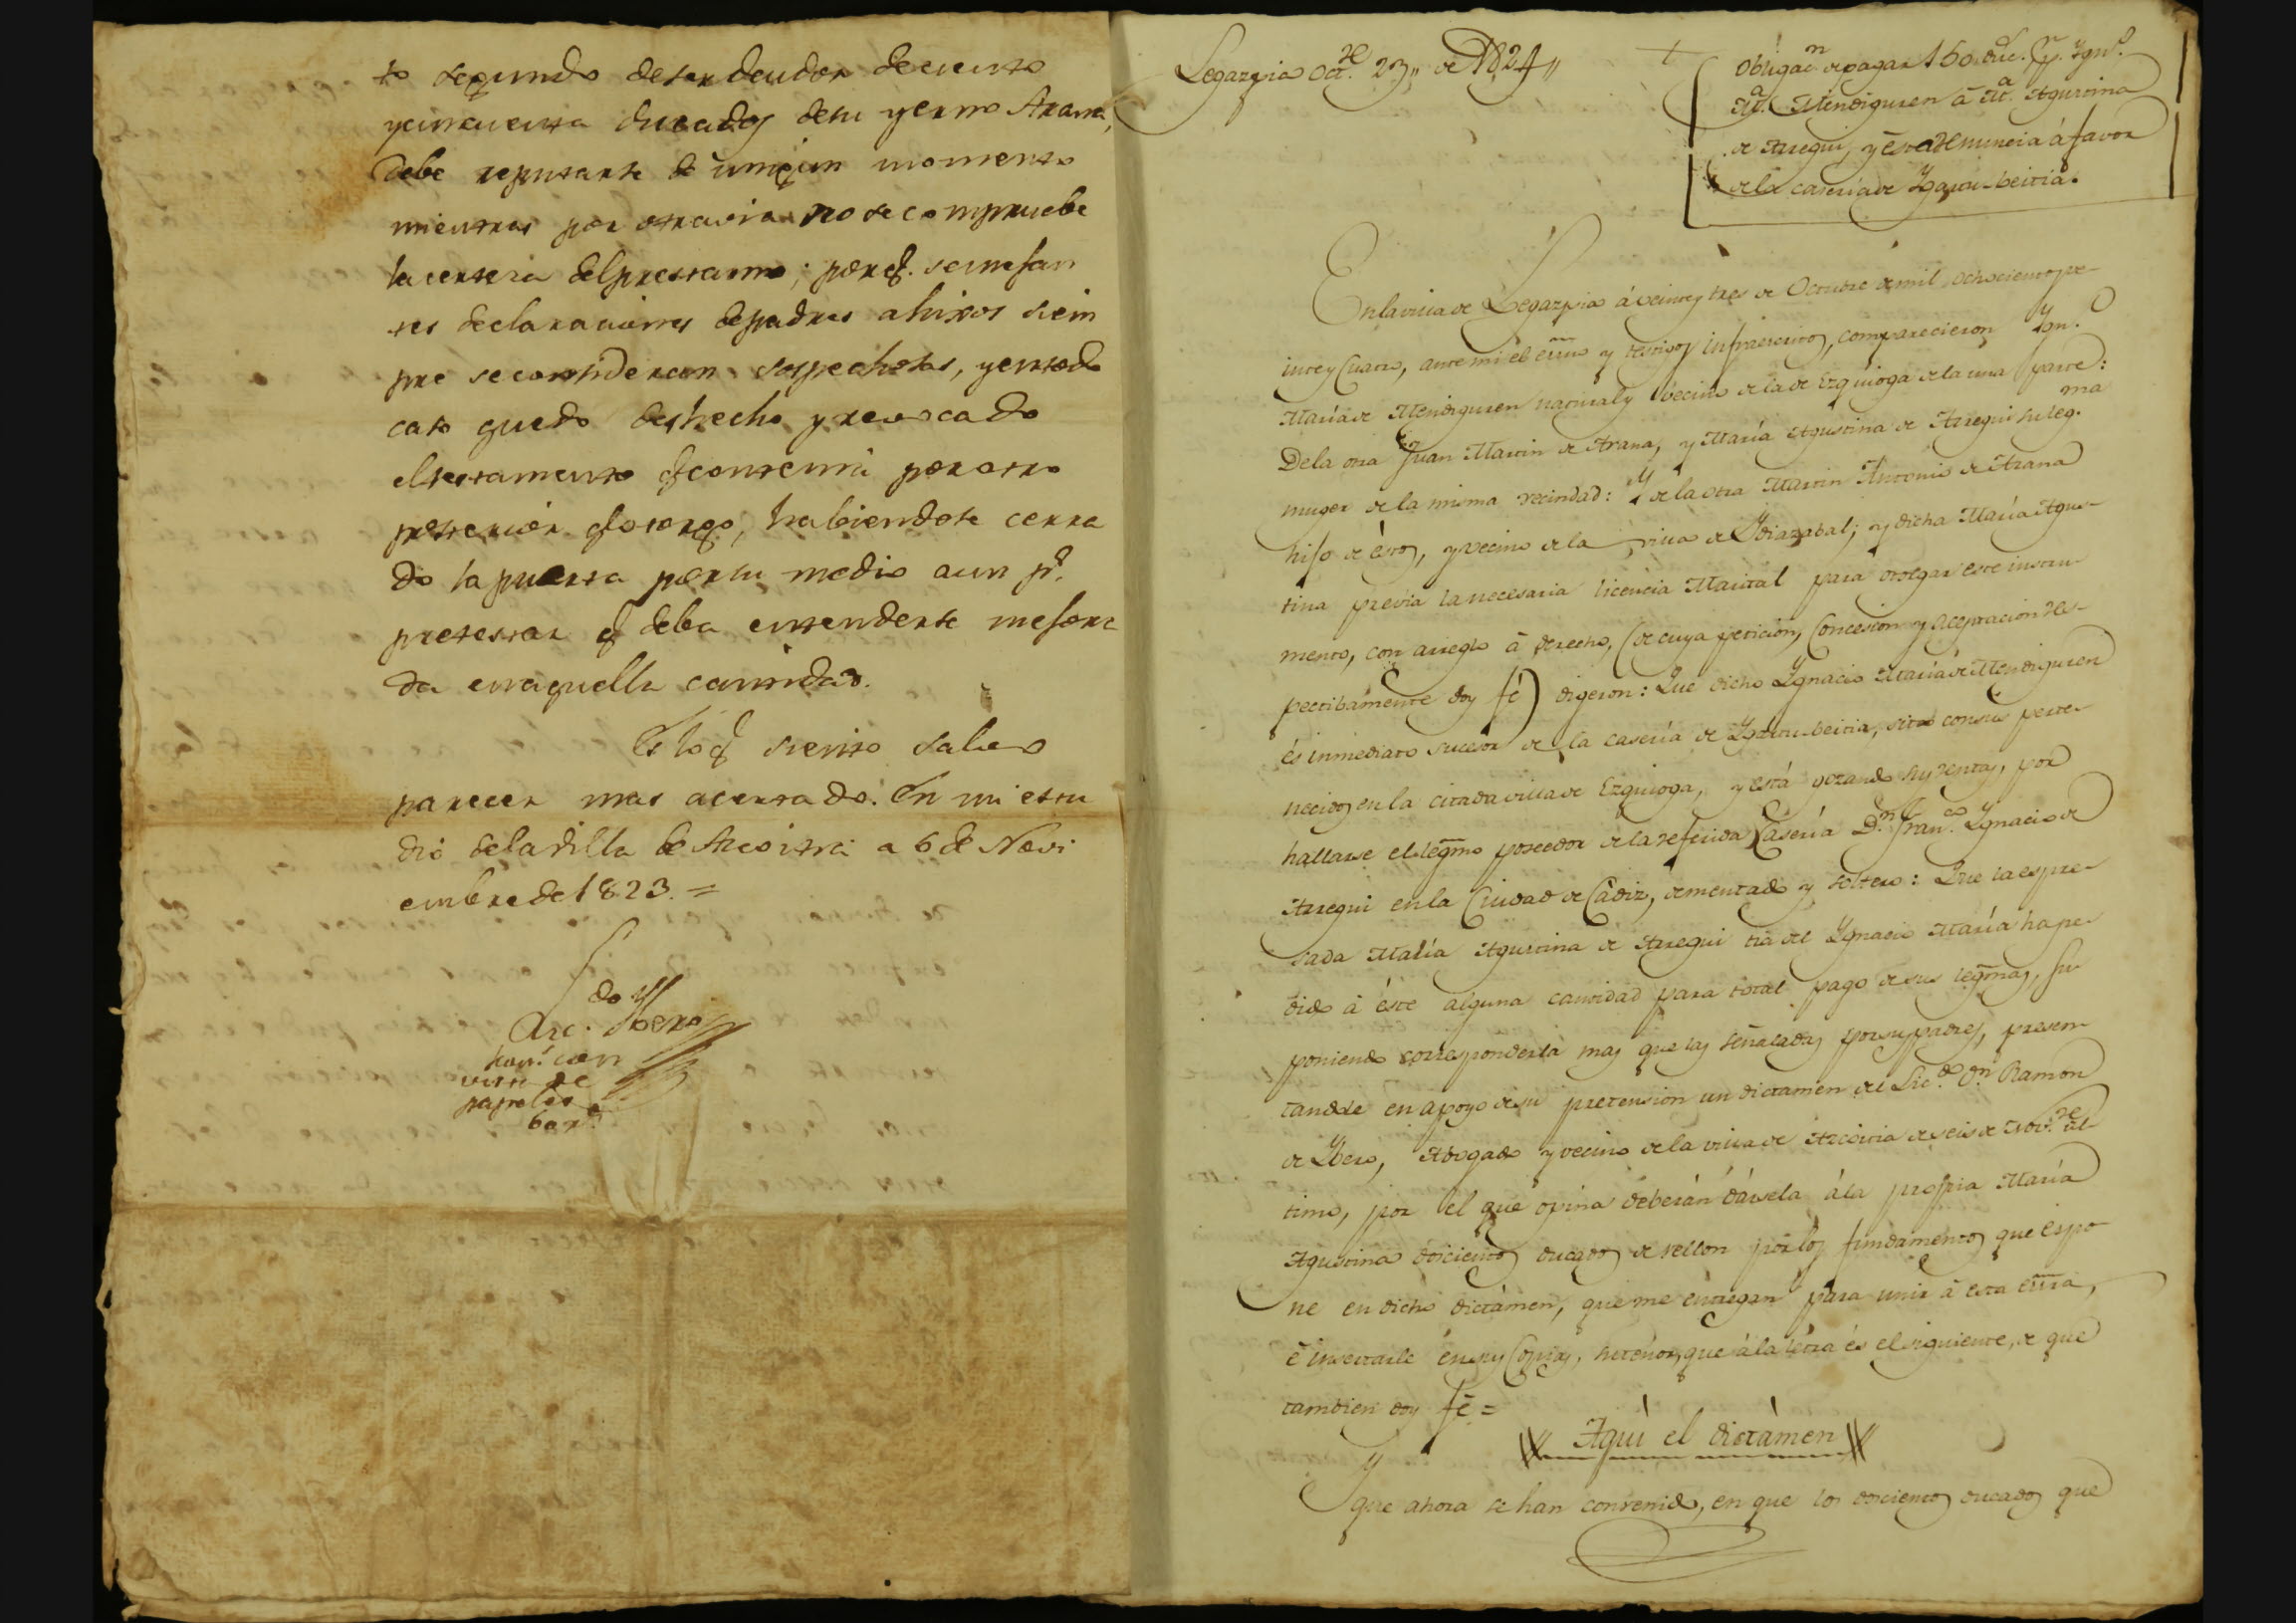 to segundo deser deudor deciento
ycincuenta ducados desu yerno Arana,
debe reputarse de ningun momento
mientras por otra via no se compruebe
la certeza del prestamo; porq. semejan
tes declaraciones de padres a hixos siem
pre se consideran sospechosas, y en todo
caso quedó deshecho y revocado
el testamento q contenia por otro
posterior q otorgó, habiendose cerra
do la puerta por su medio aun pa.
pretestar q deba entenderse mejora
da en aquella cantidad.
Es lo q siento salvo
parecer mas acertado. En mi estu
dio de la villa de Azcoitia a 6 de Novi
embre de 1823. =
Ldo Ybero
papeles
Legazpia Oct.re 23,, de 1824,,
Obligac.n de pagar 150 duc.s pr. Ygn.o
Ma. Mendiguren á Ma. Agustina
de Arregui, y ésta renuncia á favor
de la caseria de Ygartu-beitia.
En la villa de Legazpia á veinte y tres de Octubre de mil ochocientos ve-
inte y Cuatro, ante mi el Essno y testigos infraescritos, comparecieron Ygn.o
María de Mendiguren natural y vecino de la de Ezquioga de la una parte:
De la otra Juan Martin de Arana, y María Agustina de Arregui su leg.ma
muger de la misma vecindad: Y de la otra Martin Antonio de Arana
hijo de éstos, y vecino de la villa de Ydiazabal; y dicha María Agus-
tina previa la necesaria licencia Marital para otorgar este instru-
mento, con arreglo á derecho, (de cuya peticion, Concesion y aceptacion res-
pectibamente doy fé) digeron: Que dicho Ygnacio María de Mendiguren
és inmediato sucesor de la casería de Ygartu-beitia, sita con sus perte-
necidos en la citada villa de Ezquioga, y está gozando sus rentas, por
hallarse el legmo poseedor de la referida Casería D.n Fran.co Ygnacio de
Arregui en la Ciudad de Cádiz, dementado y soltero: Que la espre-
sada María Agustina de Arregui tia del Ygnacio María ha pe-
dido á éste alguna cantidad para total pago de sus legmas, su-
poniendo corresponderla mas que las señaladas por sus padres, presen-
tandole en apoyo de su pretension un dictamen del Lic.do Dn Ramon
de Ybero, Abogado y vecino de la villa de Azcoitia de seis de Nov.re ul-
timo, por el que opina deberán dársela á la propia María
Agustina doscientos ducados de vellon por los fundamentos que espo-
ne en dicho dictámen, que me entregan para unir á esta Essra,
é insertarle en sus Copias, su tenor, que á la letra és el siguiente, de que
tambien doy fé =
Aquí el dictámen
Y que ahora se han convenido, en que los doscientos ducados que